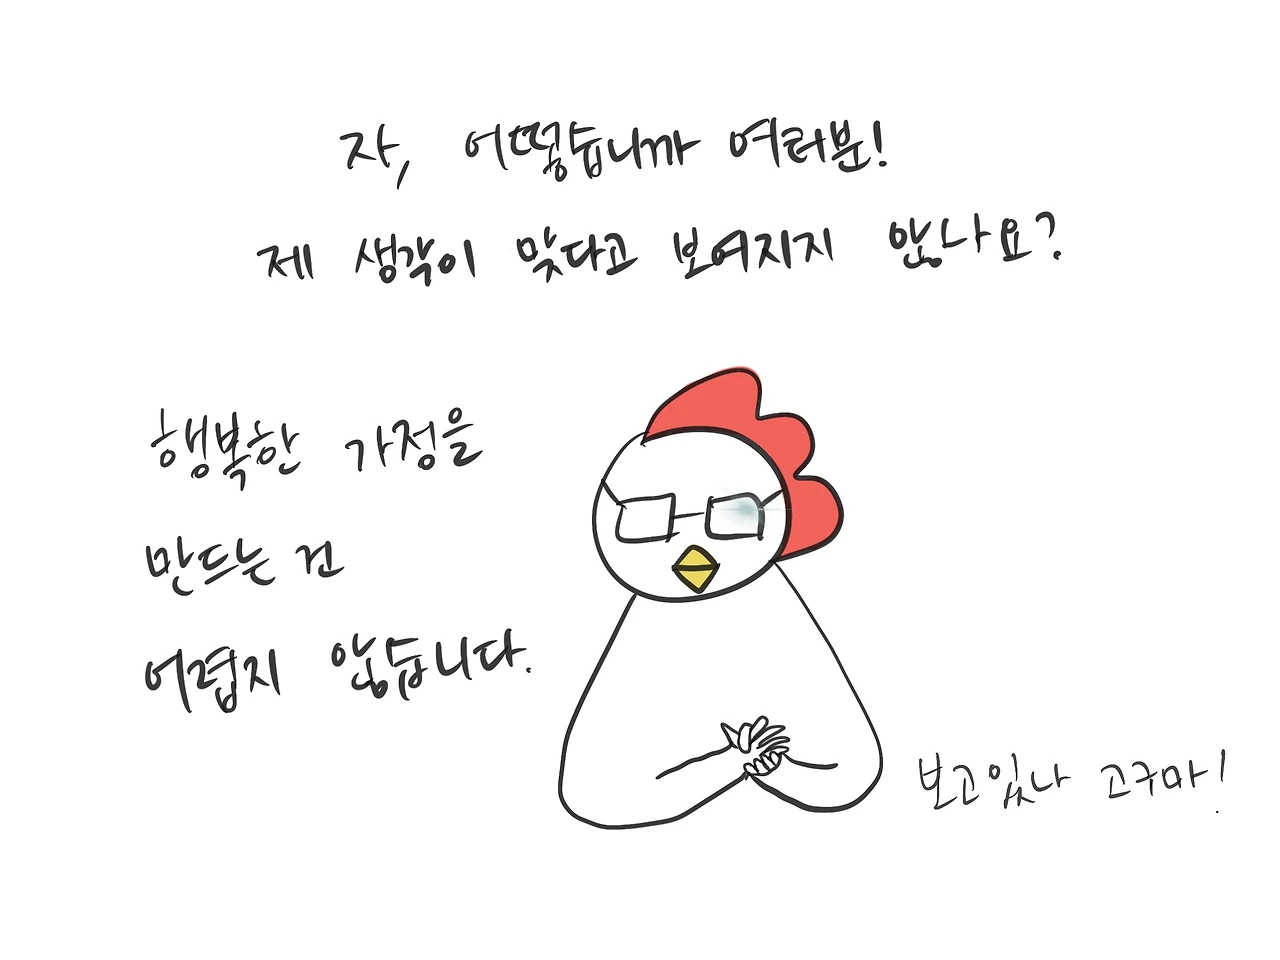 자, 어떻습니까 여러분!
제 생각이 맞다고 보여지지 않나요?
행복한 가정을
만드는 건
어렵지 않습니다.
보고있나 고구마!